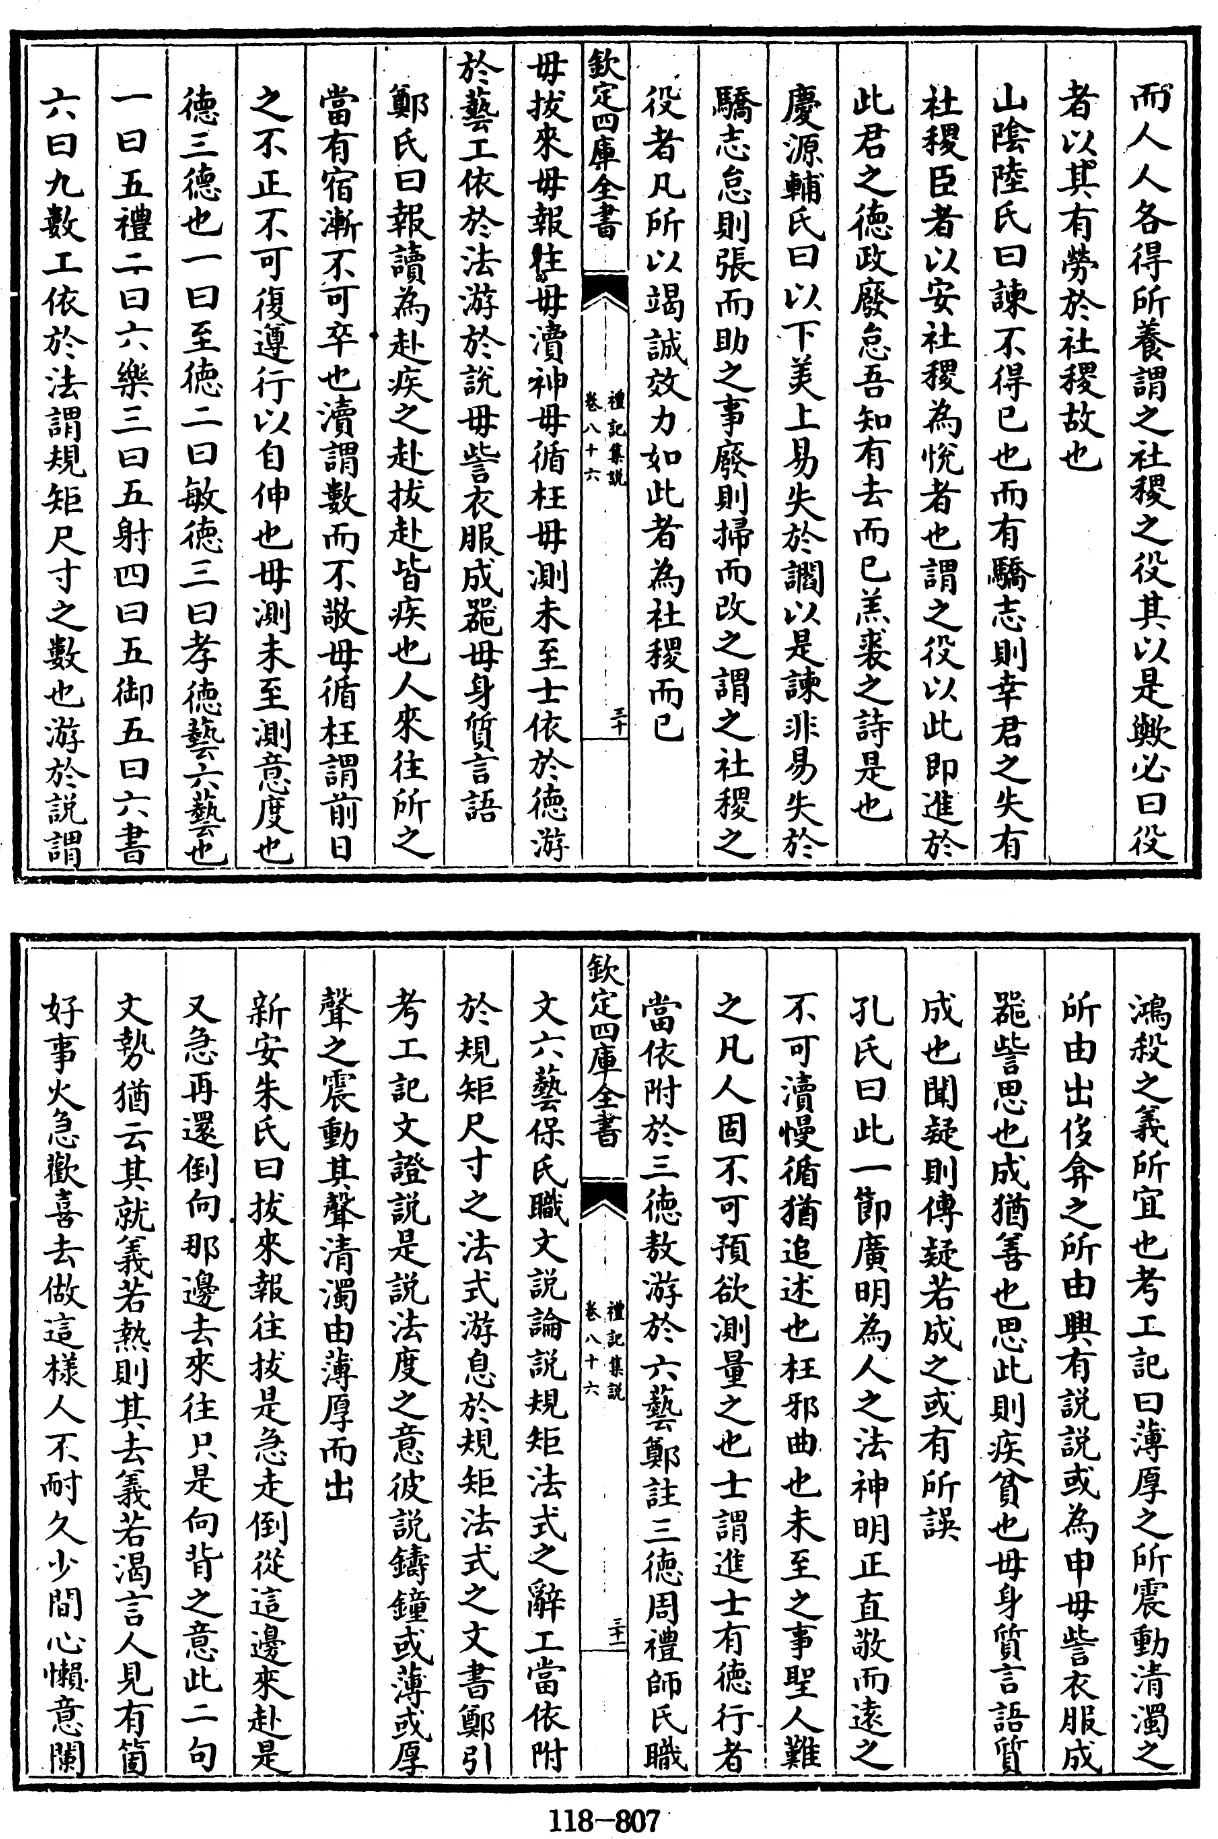 而人人各得所養謂之社稷之役其以是歟必曰役
者以其有勞於社稷故也
山陰陸氏曰諫不得已也而有驕志則幸君之失有
社稷臣者以安社稷為悅者也謂之役以此即進於
此君之德政廢怠吾知有去而已羔裘之詩是也
慶源輔氏曰以下美上易失於讇以是諫非易失於
驕志怠則張而助之事廢則掃而改之謂之社稷之
役者凡所以竭誠效力如此者為社稷而已
欽定四庫全書
禮記集說
卷八十六
三十
毋拔來毋報往毋瀆神毋循枉毋測未至士依於德游
於藝工依於法游於說毋訾衣服成器毋身質言語
鄭氏曰報讀為赴疾之赴拔赴皆疾也人來往所之
當有宿漸不可卒也瀆謂數而不敬毋循枉謂前日
之不正不可復遵行以自伸也毋測未至測意度也
德三德也一曰至德二曰敏德三曰孝德藝六藝也
一曰五禮二曰六樂三曰五射四曰五御五曰六書
六曰九數工依於法謂規矩尺寸之數也游於說謂
鴻殺之義所宜也考工記曰薄厚之所震動清濁之
所由出侈弇之所由興有說說或為申毋訾衣服成
器訾思也成猶善也思此則疾貧也毋身質言語質
成也聞疑則傳疑若成之或有所誤
孔氏曰此一節廣明為人之法神明正直敬而遠之
不可瀆慢循猶追述也枉邪曲也未至之事聖人難
之凡人固不可預欲測量之也士謂進士有德行者
當依附於三德敖游於六藝鄭註三德周禮師氏職
欽定四庫全書
禮記集說
卷八十六
三十一
文六藝保氏職文說論說規矩法式之辭工當依附
於規矩尺寸之法式游息於規矩法式之文書鄭引
考工記文證說是說法度之意彼說鑄鐘或薄或厚
聲之震動其聲清濁由薄厚而出
新安朱氏曰拔來報往拔是急走倒從這邊來赴是
又急再還倒向那邊去來往只是向背之意此二句
文勢猶云其就義若熱則其去義若渴言人見有箇
好事火急歡喜去做這樣人不耐久少間心懶意闌
118-807